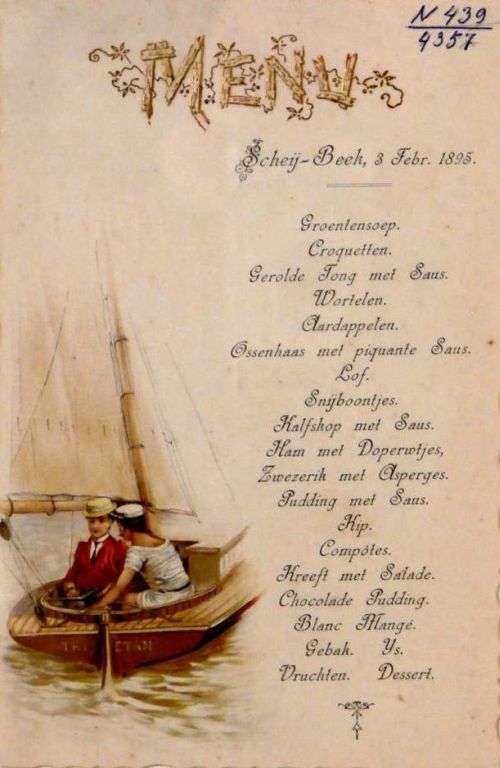 N 439
4357
MENU
Scheij-Beek, 3 Febr. 1895.
Groentensoep.
Croquetten.
Gerolde Tong met Saus.
Wortelen.
Aardappelen.
Ossenhaas met piquante Saus.
Lof.
Snijboontjes.
Kalfshop met Saus.
Ham met Doperwtjes,
Zwezerik met Asperges.
Pudding met Saus.
Kip.
Compótes.
Kreeft met Salade.
Chocolade Pudding.
Blanc Mangé.
Gebak. Ys.
Vruchten. Dessert.